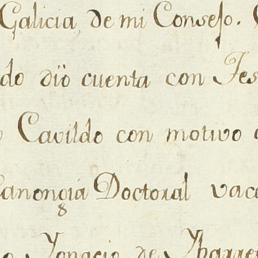 Galicia, de mi Consejo.
do dïo cuenta con Tes
Cavildo con motivo
Canongia Doctoral vaca
Ignacio de Ybarre